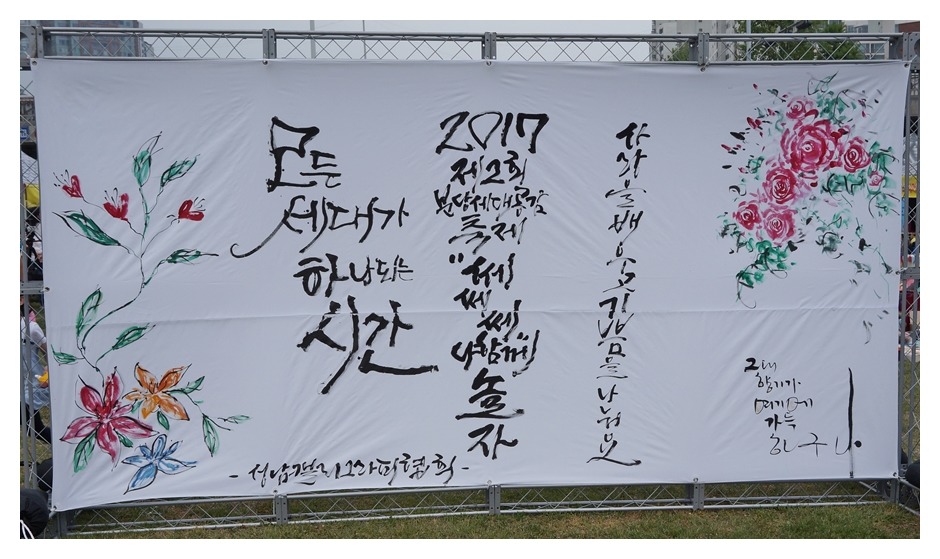 모든
세대가
하나되는
시간
2017
제2회
분당세대공감
축제
"쎄
쎄
쎄"
다함께
놀
자
사랑을 배움 기쁨을 나눠요
그대
향기가
여기에
가득
하구나.
- 성남캘리그라피협회 -